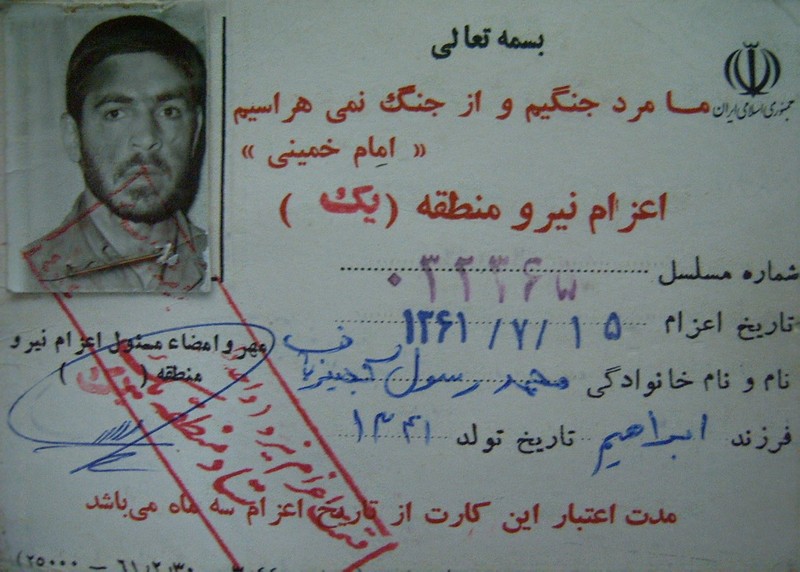 بسمه تعالی
جمهوری اسلامی ایران
ما مرد جنگیم و از جنگ نمی هراسیم
« امام خمینی »
اعزام نیرو منطقه ( یک )
شماره مسلسل ۰۳۲۳۶۵
تاریخ اعزام ۱۳۶۱/۷/۱۵
نام و نام خانوادگی محمد رسول
فرزند ابراهیم تاریخ تولد ۱۳۴۱
مهر و امضاء مسئول اعزام نیرو
منطقه ( )
مدت اعتبار این کارت از تاریخ اعزام سه ماه می‌باشد
(۲۵۰۰۰ — ۶۱/۲/۳۰